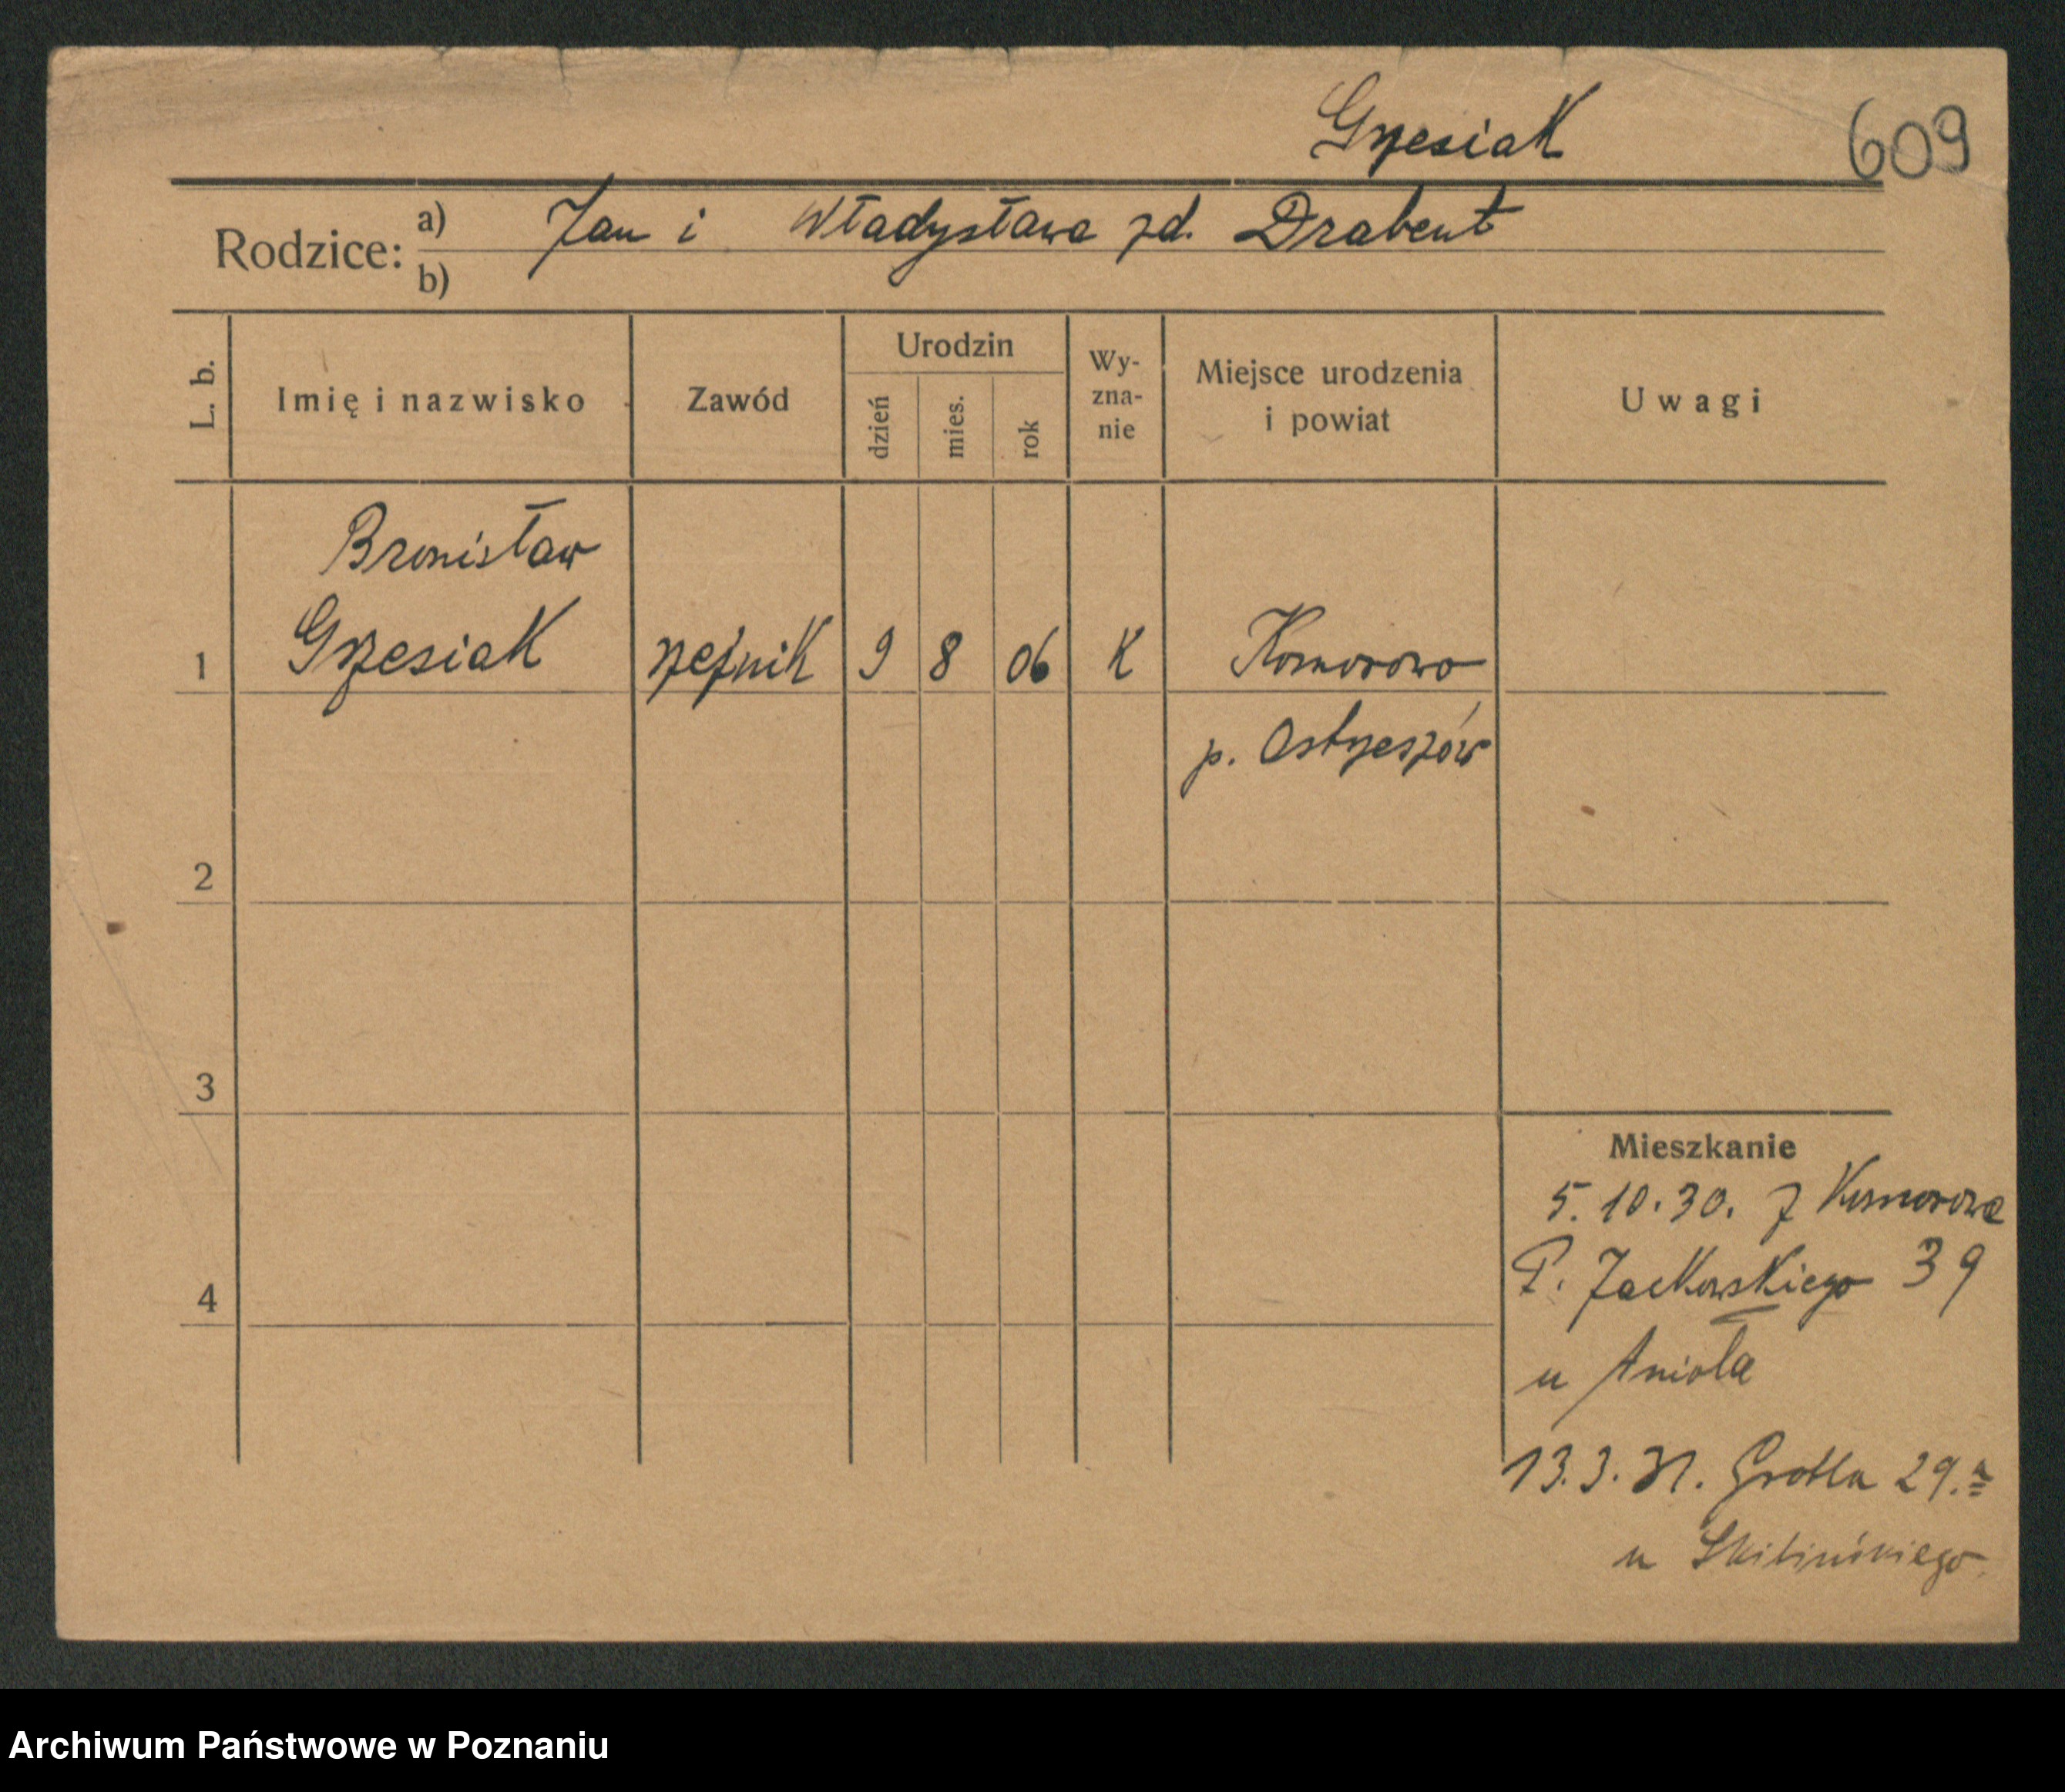 Grzesiak
609
Rodzice: a) Jan i Władysława zd. Drabent
b)
L. b.
Imię i nazwisko
Zawód
Urodzin
dzień
mies.
rok
Wy-
zna-
nie
Miejsce urodzenia
i powiat
Uwagi
Bronisław
1 Grzesiak rzeźnik 9 8 06 K Komorowo
p. Ostrzeszów
2
3
4
Mieszkanie
5.10.30. z Komorowa
P. Jackowskiego 39
u Anioła
13.3.31. Grobla 29.a
u
Archiwum Państwowe w Poznaniu